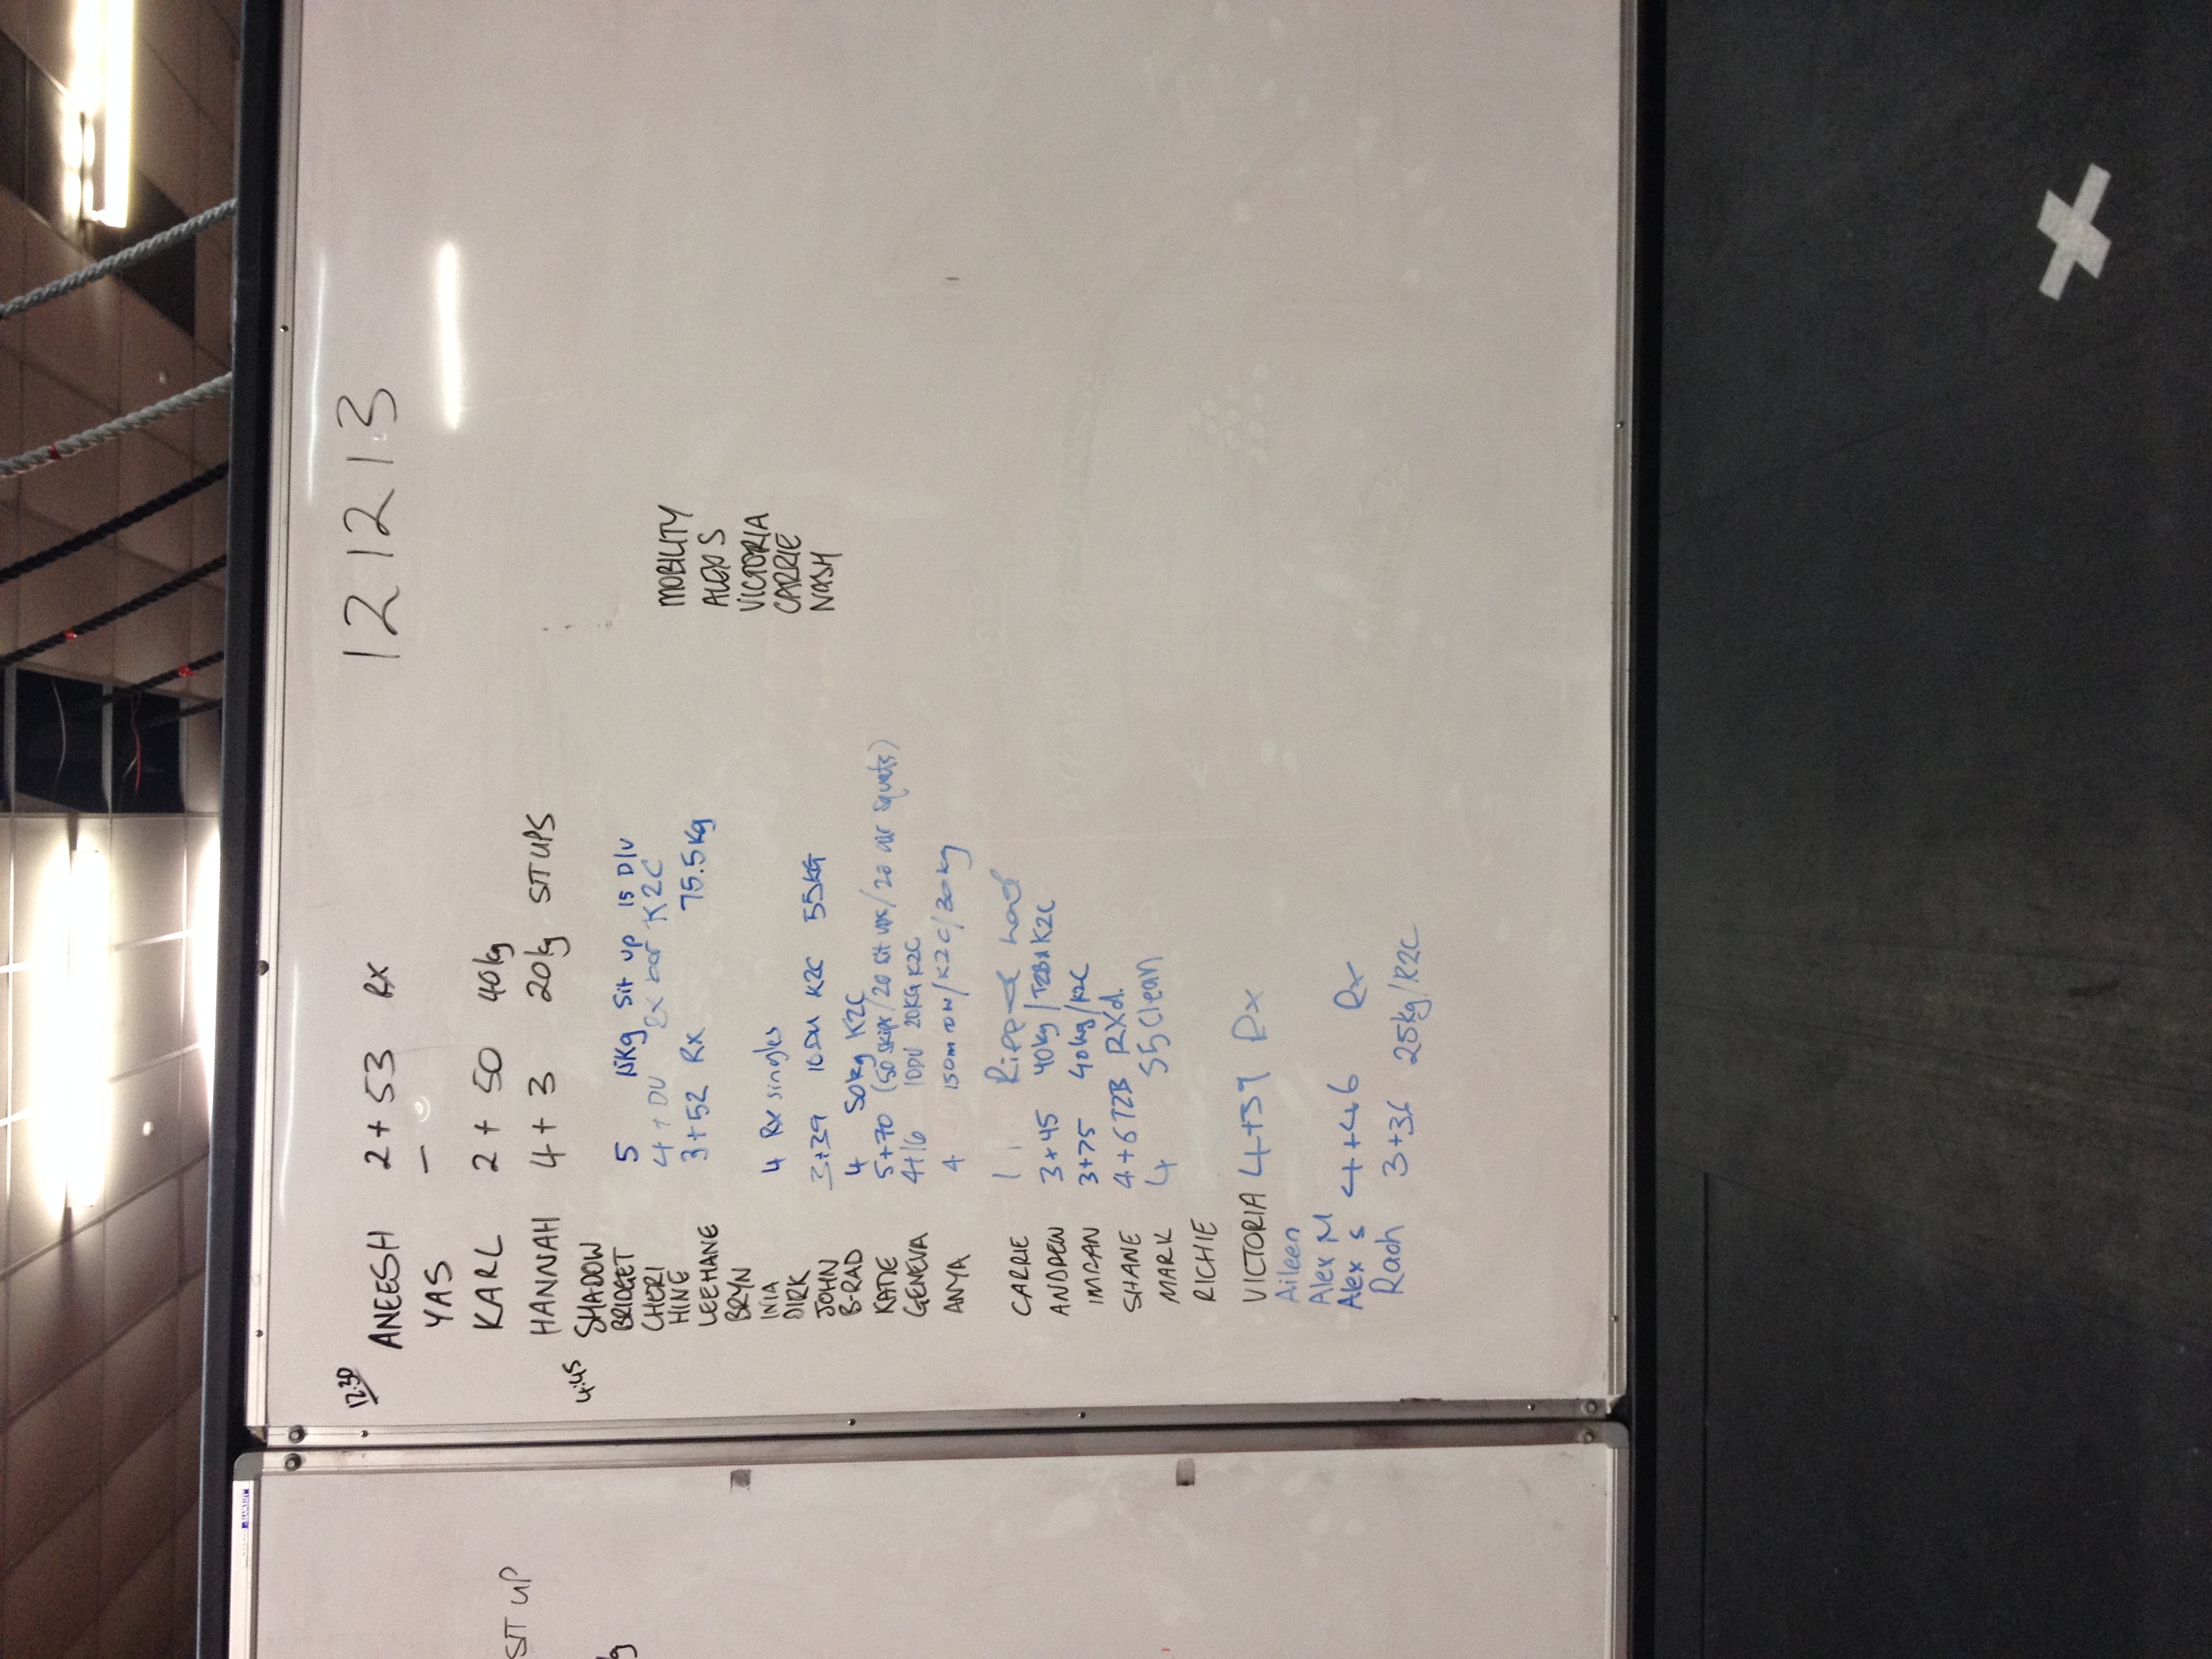 121213
12:30
ANEESH 2 + 53 RX
YAS —
KARL 2 + 50 40kg
HANNAH 4 + 3 20kg SIT UPS
4:45
SHADOW
BRIDGET 5 15kg Sit up 15 D/U
CHERI 4 + 1 DU Rx bar K2C
HINE 3 + 52 Rx 75.5kg
LEEHANE
BRYN
INIA 4 Rx singles
DIRK
JOHN 3+39 10DU K2C 55KG
B-RAD 4 50kg K2C
KATIE 5+70 (50 skips/20 sit ups/20 air squats)
GENEVA 4+16 10DU 20KG K2C
ANYA 4 150m row/K2C/30kg
CARRIE Ripped hand
ANDREW 3+45 40kg/T2B K2C
IMRAN 3+75 40kg/K2C
SHANE 4+6 T2B RXd.
MARK 4 55 Clean
RICHIE
VICTORIA 4+39 Rx
Aileen
Alex M
Alex S 4+46 Rx
Rach 3+36 25kg/K2C
MOBILITY
ALEX S
VICTORIA
CARRIE
NASH
SIT UP